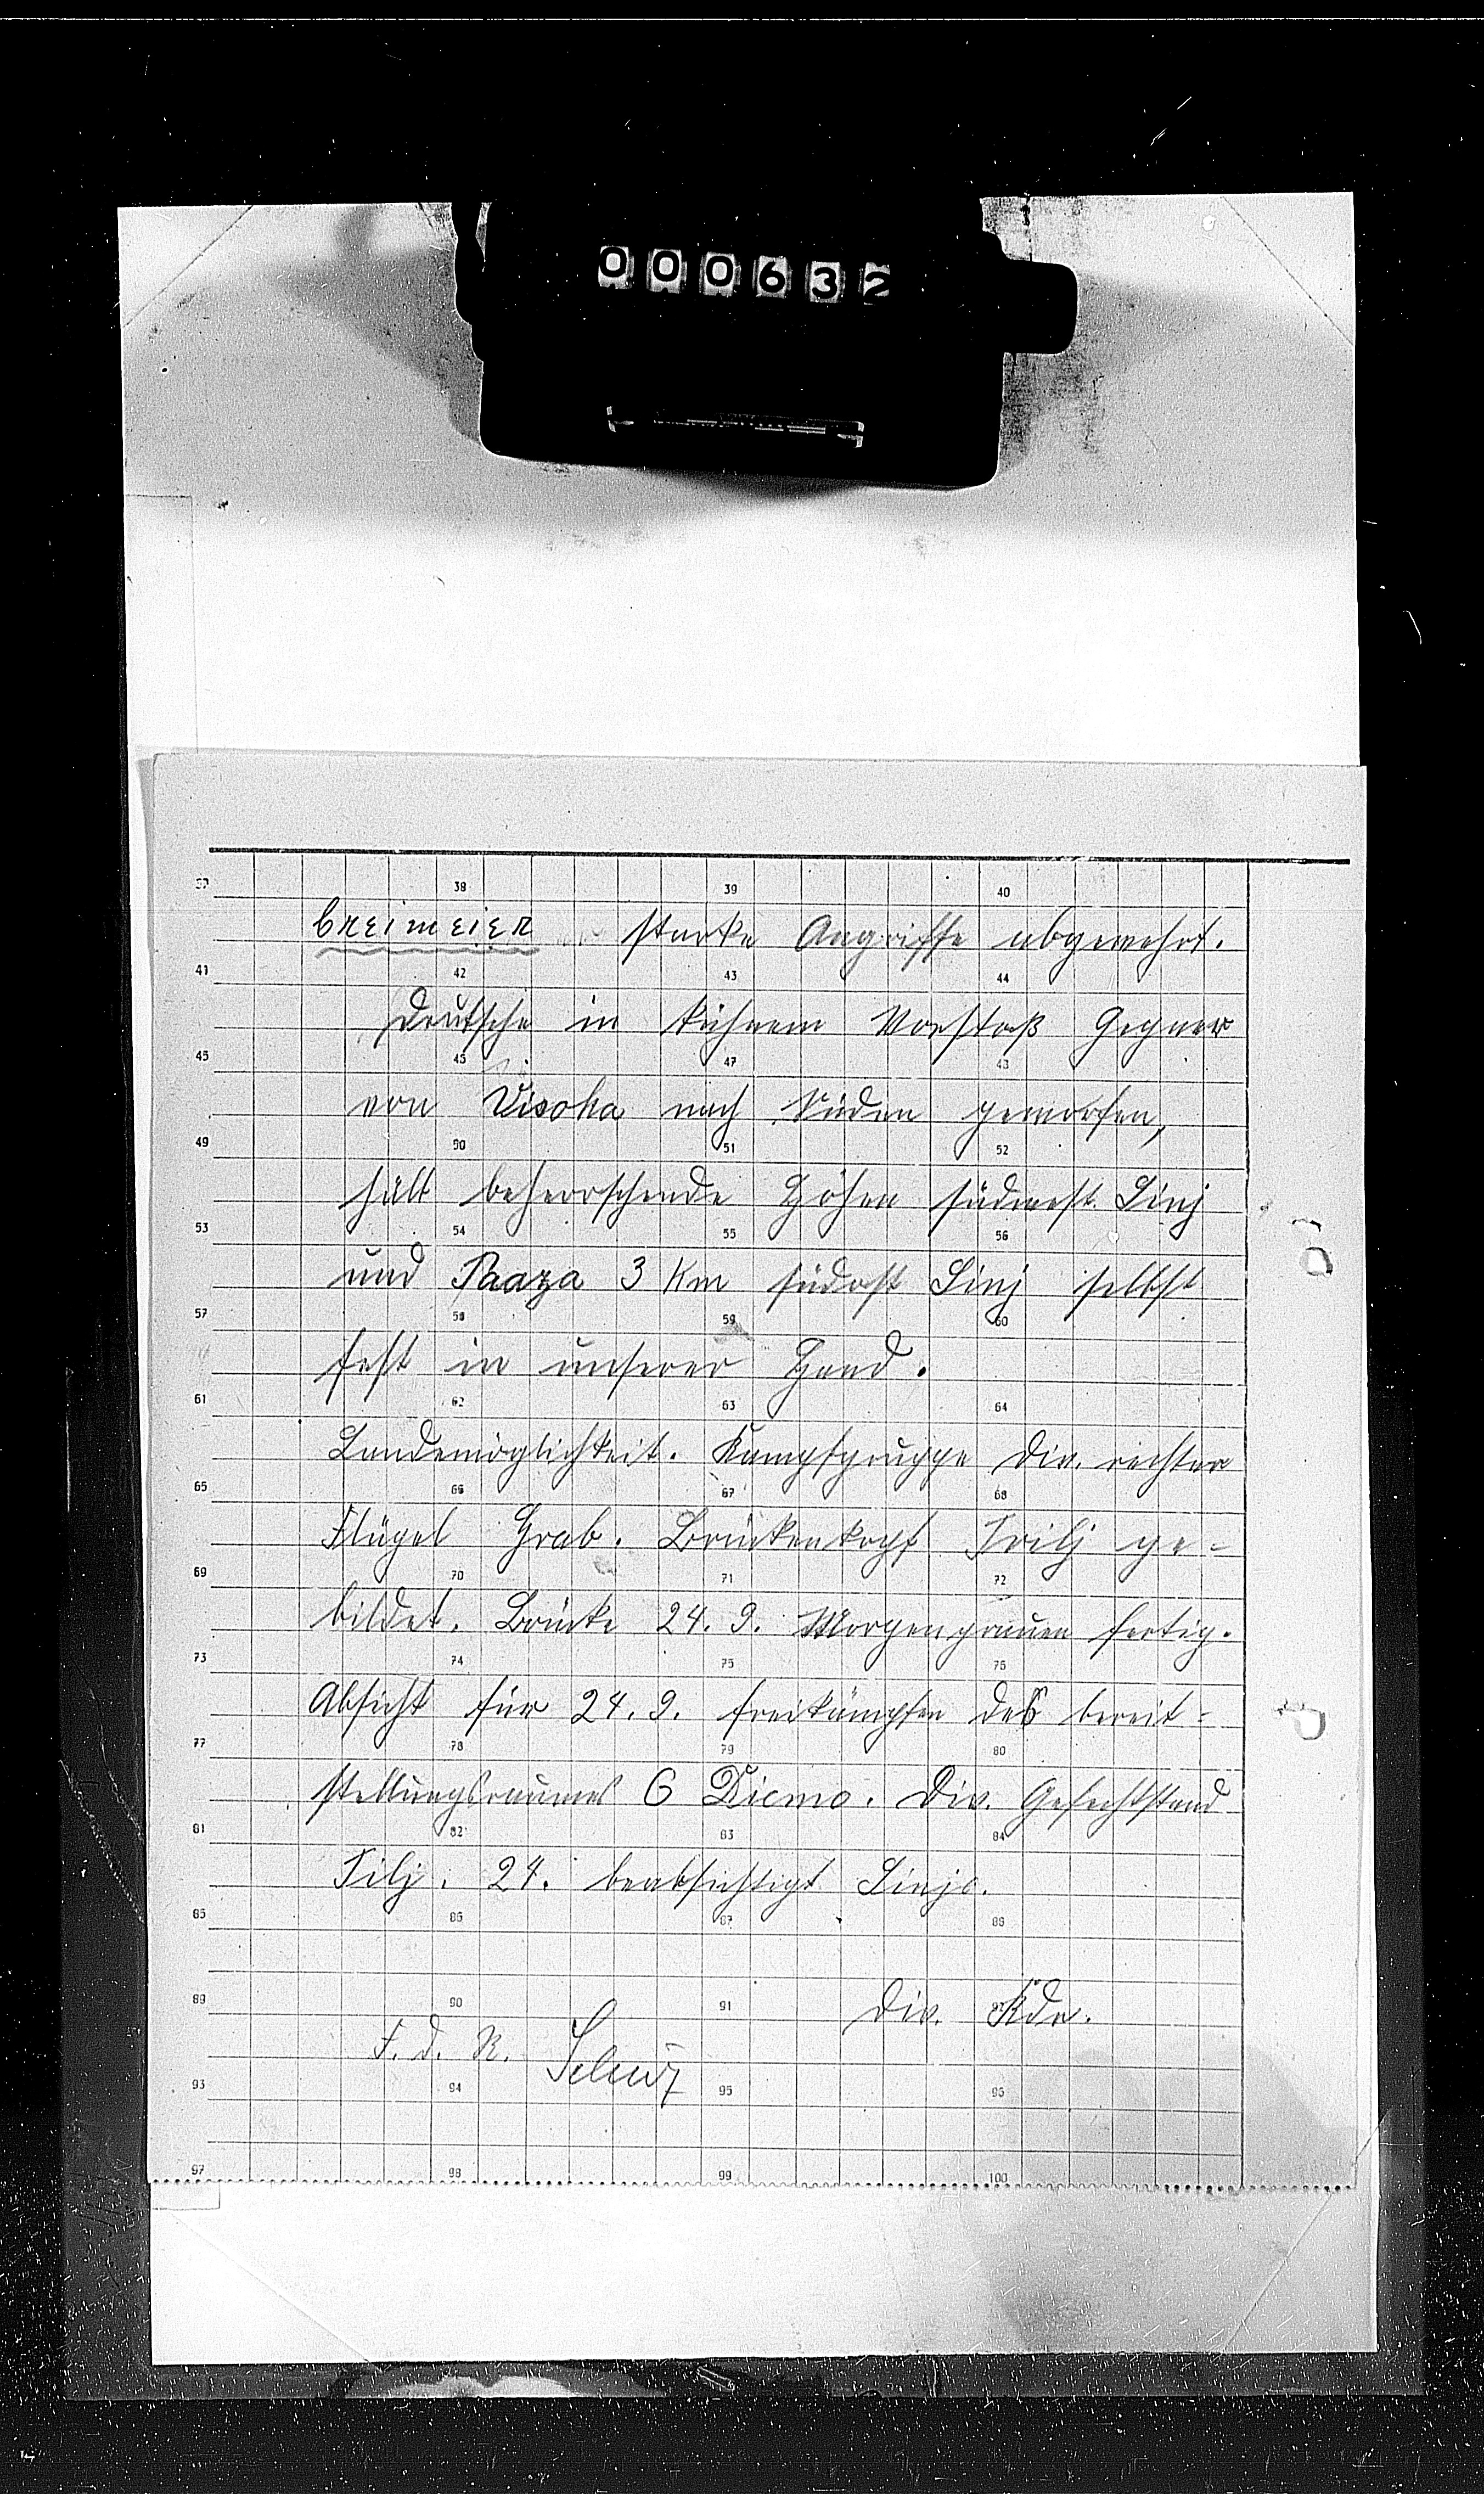 000632
37 38 39 40
breimeier starke Angriffe abgewehrt.
41 42 43 44
Deutsche in kühnem Vorstoß Gegner
45 47
von Visoka nach Süden geworfen,
49 50 51 52
hält beherrschende Höhen südwestl. Sinj
53 54 55 56
und Paaza 3 Km südostl Sinj selbst
57 58 59 60
fest in unserer Hand.
61 62 63 64
Landemöglichkeit. Kampfgruppe Div. rechter
65 66 67 68
Flügel Grab. Brückenkopf Trilj ge-
69 70 71 72
bildet. Brücke 24. 9. Morgengrauen fertig.
73 74 75 76
Absicht für 24. 9. freikämpfen des bereit-
77 78 79 80
stellungsraumes 6 Dicmo. Div. Gefechtstand
81 82 83 84
Tilj. 24. beabsichtigt Sinjo.
85 86 87 88
89 90 91
Div. Kdr.
F. d. R.
93 94 95 96
97 98 99 100